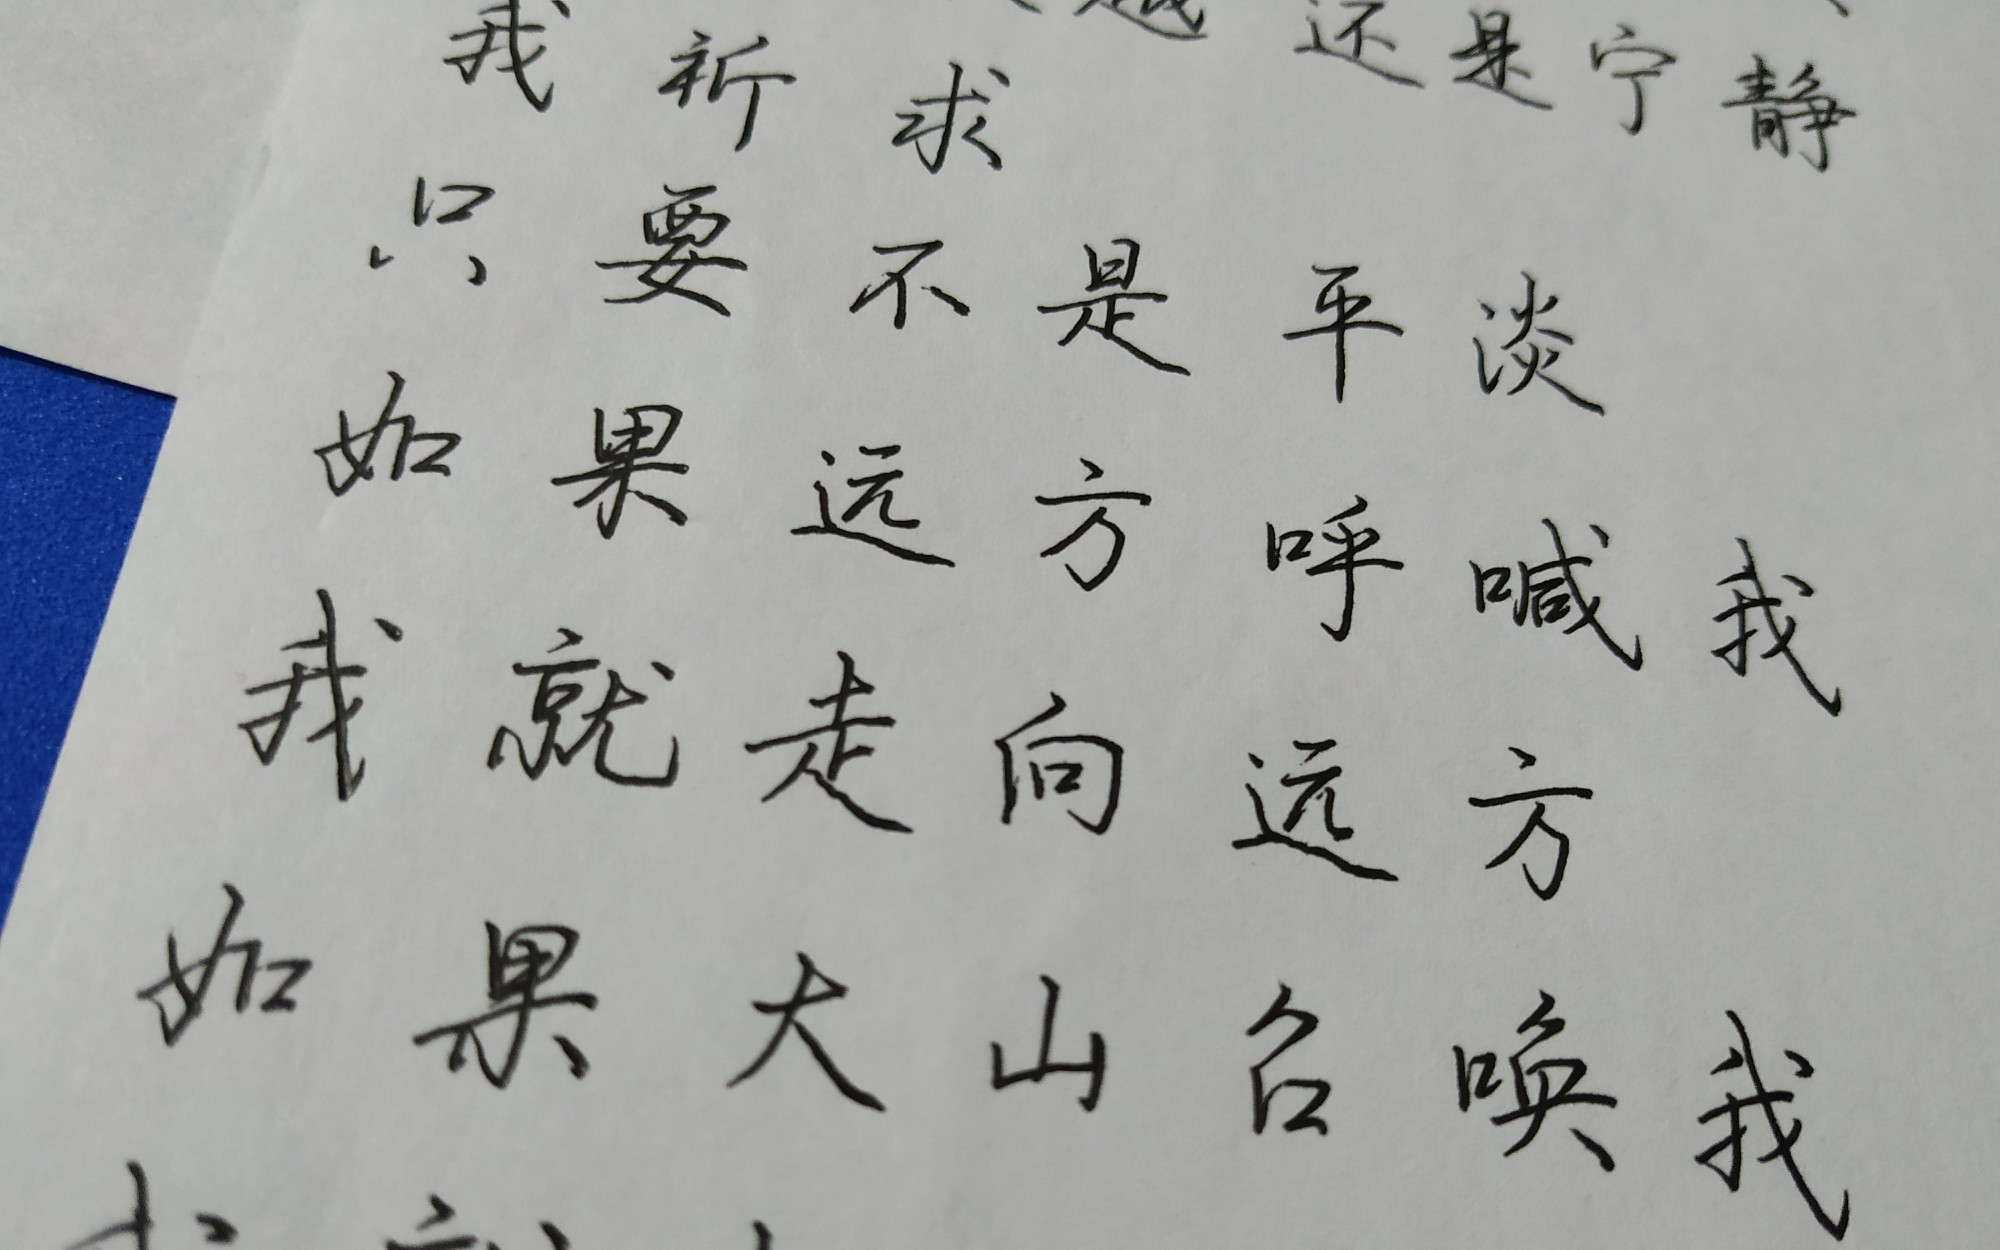 越还是宁静
我祈求
只要不是平淡
如果远方呼喊我
我就走向远方
如果大山召唤我